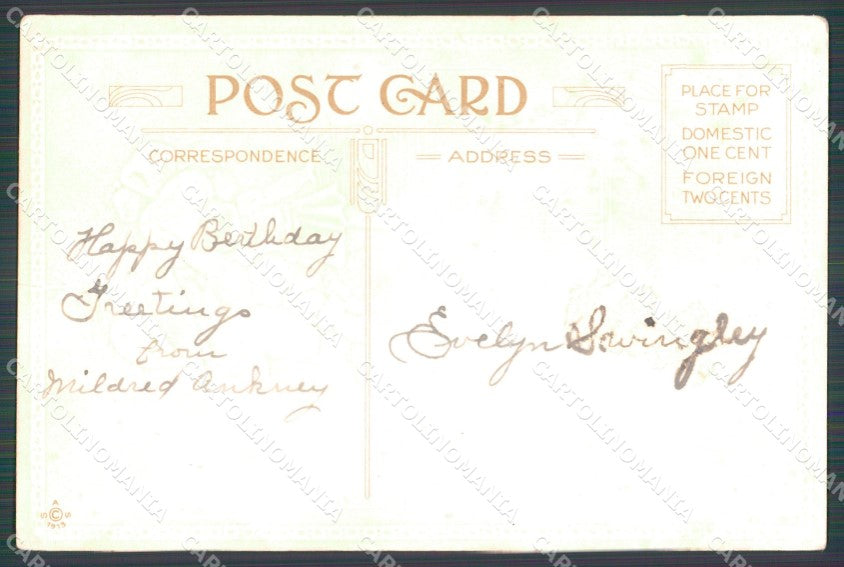 POST CARD
CORRESPONDENCE
ADDRESS
PLACE FOR
STAMP
DOMESTIC
ONE CENT
FOREIGN
TWO CENTS
Happy Birthday
Greetings
from
Mildred Ankney
Evelyn Swingley
A
S © S
1913
CARTOLINOMANIA